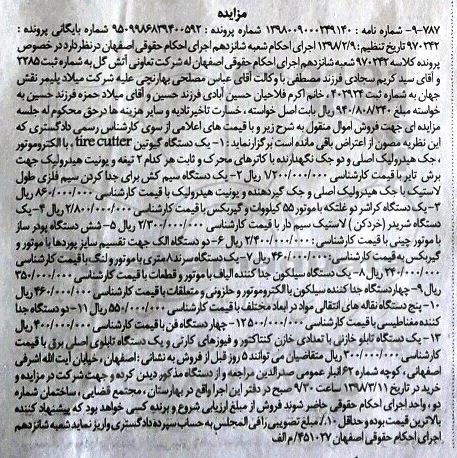 مزایده
۹-۷۸۷- شماره نامه : ۱۳۹۸۰۰۹۰۰۰۲۴۹۱۴۰ شماره پرونده : ۹۵۰۹۹۸۶۸۳۹۴۰۰۵۹۲ شماره بایگانی پرونده :
۹۷۰۲۴۲ تاریخ تنظیم : ۱۳۹۸/۲/۹ اجرای احکام شعبه شانزدهم اجرای احکام حقوقی اصفهان در نظر دارد در خصوص
پرونده کلاسه ۹۷۰۲۴۲ شعبه شانزدهم اجرای احکام حقوقی اصفهان له شرکت تعاونی آتش گل به شماره ثبت ۲۲۸۵
و آقای سید کریم سجادی فرزند مصطفی با وکالت آقای عباس مصلحی بهارنچی علیه شرکت میلاد پلیمر نقش
جهان به شماره ثبت ۴۰۲۹۲۴، خانم اکرم فلاحیان حسین آبادی فرزند حسین و آقای میلاد حمزه فرزند حسین به
خواسته مبلغ ۹۴۰/۸۰۸/۳۴۰ ریال بابت اصل خواسته، خسارت تاخیر تادیه و سایر هزینه ها در حق محکوم له جلسه
مزایده ای جهت فروش اموال منقول به شرح زیر و با قیمت های اعلامی از سوی کارشناس رسمی دادگستری که
این نظریه مصون از اعتراض باقی مانده است برگزار نماید: ۱- یک دستگاه گیوتین tire cutter، با الکتروموتور
، جک هیدرولیک اصلی و دو جک نگهدارنده با کاترهای محرک و ثابت هر کدام ۲ تیغه و یونیت هیدرولیک جهت
برش تایر با قیمت کارشناسی ۷۲۰۰/۰۰۰/۰۰۰ ریال ۲- یک دستگاه سیم کش برای جدا کردن سیم فلزی طول
لاستیک با جک هیدرولیک اصلی و جک گیردهنده و یونیت هیدرولیک با قیمت کارشناسی ۸۶۰/۰۰۰/۰۰۰ ریال
۳- یک دستگاه کراشر دو غلتکه با موتور ۵۵ کیلووات و گیربکس با قیمت کارشناسی ۲/۸۰۰/۰۰۰/۰۰۰ ریال ۴- یک
دستگاه شریدر (خردکن) لاستیک سیم دار با قیمت کارشناسی ۲/۳۰۰/۰۰۰/۰۰۰ ریال ۵- شش دستگاه پودر ساز
با موتور چینی با قیمت کارشناسی : ۲/۴۰۰/۰۰۰/۰۰۰ ریال ۶- دو دستگاه الک جهت تقسیم سایز پودرها با موتور و
گیربکس به قیمت کارشناسی: ۴۶۰/۰۰۰/۰۰۰ ریال ۷- یک دستگاه سرند ۸ متری با موتور و لنگ با قیمت کارشناسی
۲۴۰/۰۰۰/۰۰۰ ریال ۸- یک دستگاه سیلکون جدا کننده الیاف با موتور و قطعات با قیمت کارشناسی ۳۵۰/۰۰۰/۰۰۰
ریال ۹- چهار دستگاه جدا کننده سیلکون با الکتروموتور و حلزونی و متعلقات با قیمت کارشناسی ۴۶۰/۰۰۰/۰۰۰ ریال
۱۰- پنج دستگاه نقاله های انتقالی مواد در ابعاد مختلف با قیمت کارشناسی ۵۵۰/۰۰۰/۰۰۰ ریال ۱۱- دو دستگاه جدا
کننده مغناطیسی با قیمت کارشناسی ۵۰۰/۰۰۰/۰۰۰ ۱۲- چهار دستگاه فن با قیمت کارشناسی ۴۰۰/۰۰۰/۰۰۰ ریال
۱۳- یک دستگاه تابلو خازنی با تعدادی خازن کنتاکتور و فیوزهای کارتی و یک دستگاه تابلوی اصلی برق با قیمت
کارشناسی ۳۰۰/۰۰۰/۰۰۰ ریال متقاضیان می توانند ۵ روز قبل از فروش به نشانی : اصفهان، خیابان آیت الله اشرفی
اصفهانی، کوچه شماره ۶۲ انبار عمومی صدرالدین مراجعه و از دستگاه مذکور دیدن کرده و جهت شرکت در مزایده و
خرید در تاریخ ۱۳۹۸/۳/۱۱ ساعت ۹/۳۰ صبح در دفتر این اجرا واقع در بهارستان، مجتمع قضایی، ساختمان شماره
دو، واحد اجرای احکام حقوقی حاضر شوند فروش از مبلغ ارزیابی شروع و برنده کسی خواهد بود که پیشنهاد کننده
بالاترین قیمت بوده و حداقل ۱۰٪ مبلغ تصویبی را فی المجلس به حساب سپرده دادگستری واریز نماید شعبه شانزدهم
اجرای احکام حقوقی اصفهان ۴۵۱۰۲۷/م الف